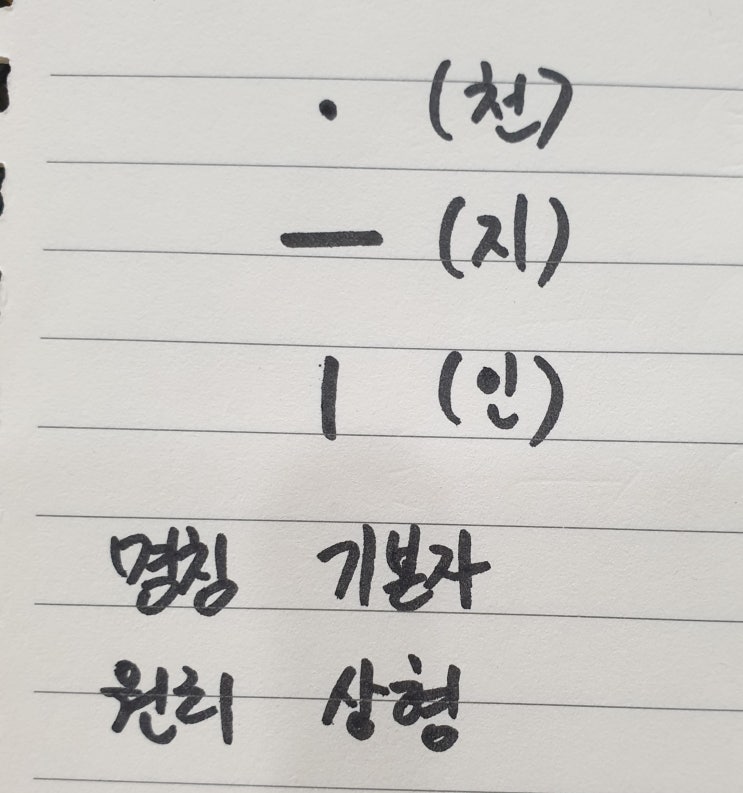 · (천)
ㅡ (지)
ㅣ (인)
명칭 기본자
원리 상형